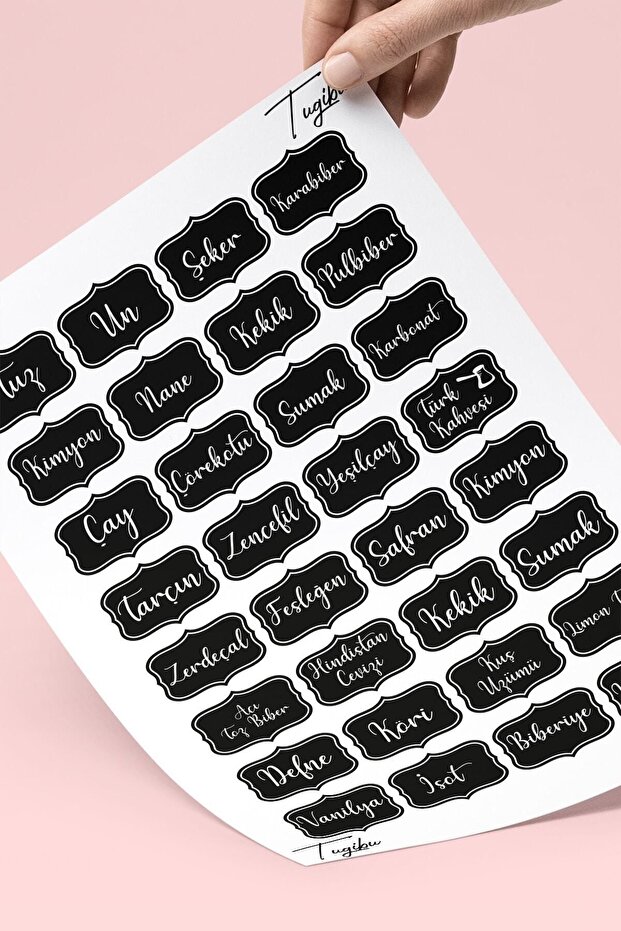 Tugibu
Tuz
Un
Şeker
Karabiber
Kimyon
Nane
Kekik
Pulbiber
Çay
Çörekotu
Sumak
Karbonat
Tarçın
Zencefil
Yeşilçay
Türk
Kahvesi
Zerdeçal
Fesleğen
Safran
Kimyon
Acı
Toz Biber
Hindistan
Cevizi
Kekik
Sumak
Defne
Köri
Kuş
Üzümü
Limon
Vanilya
İsot
Biberiye
Tugibu